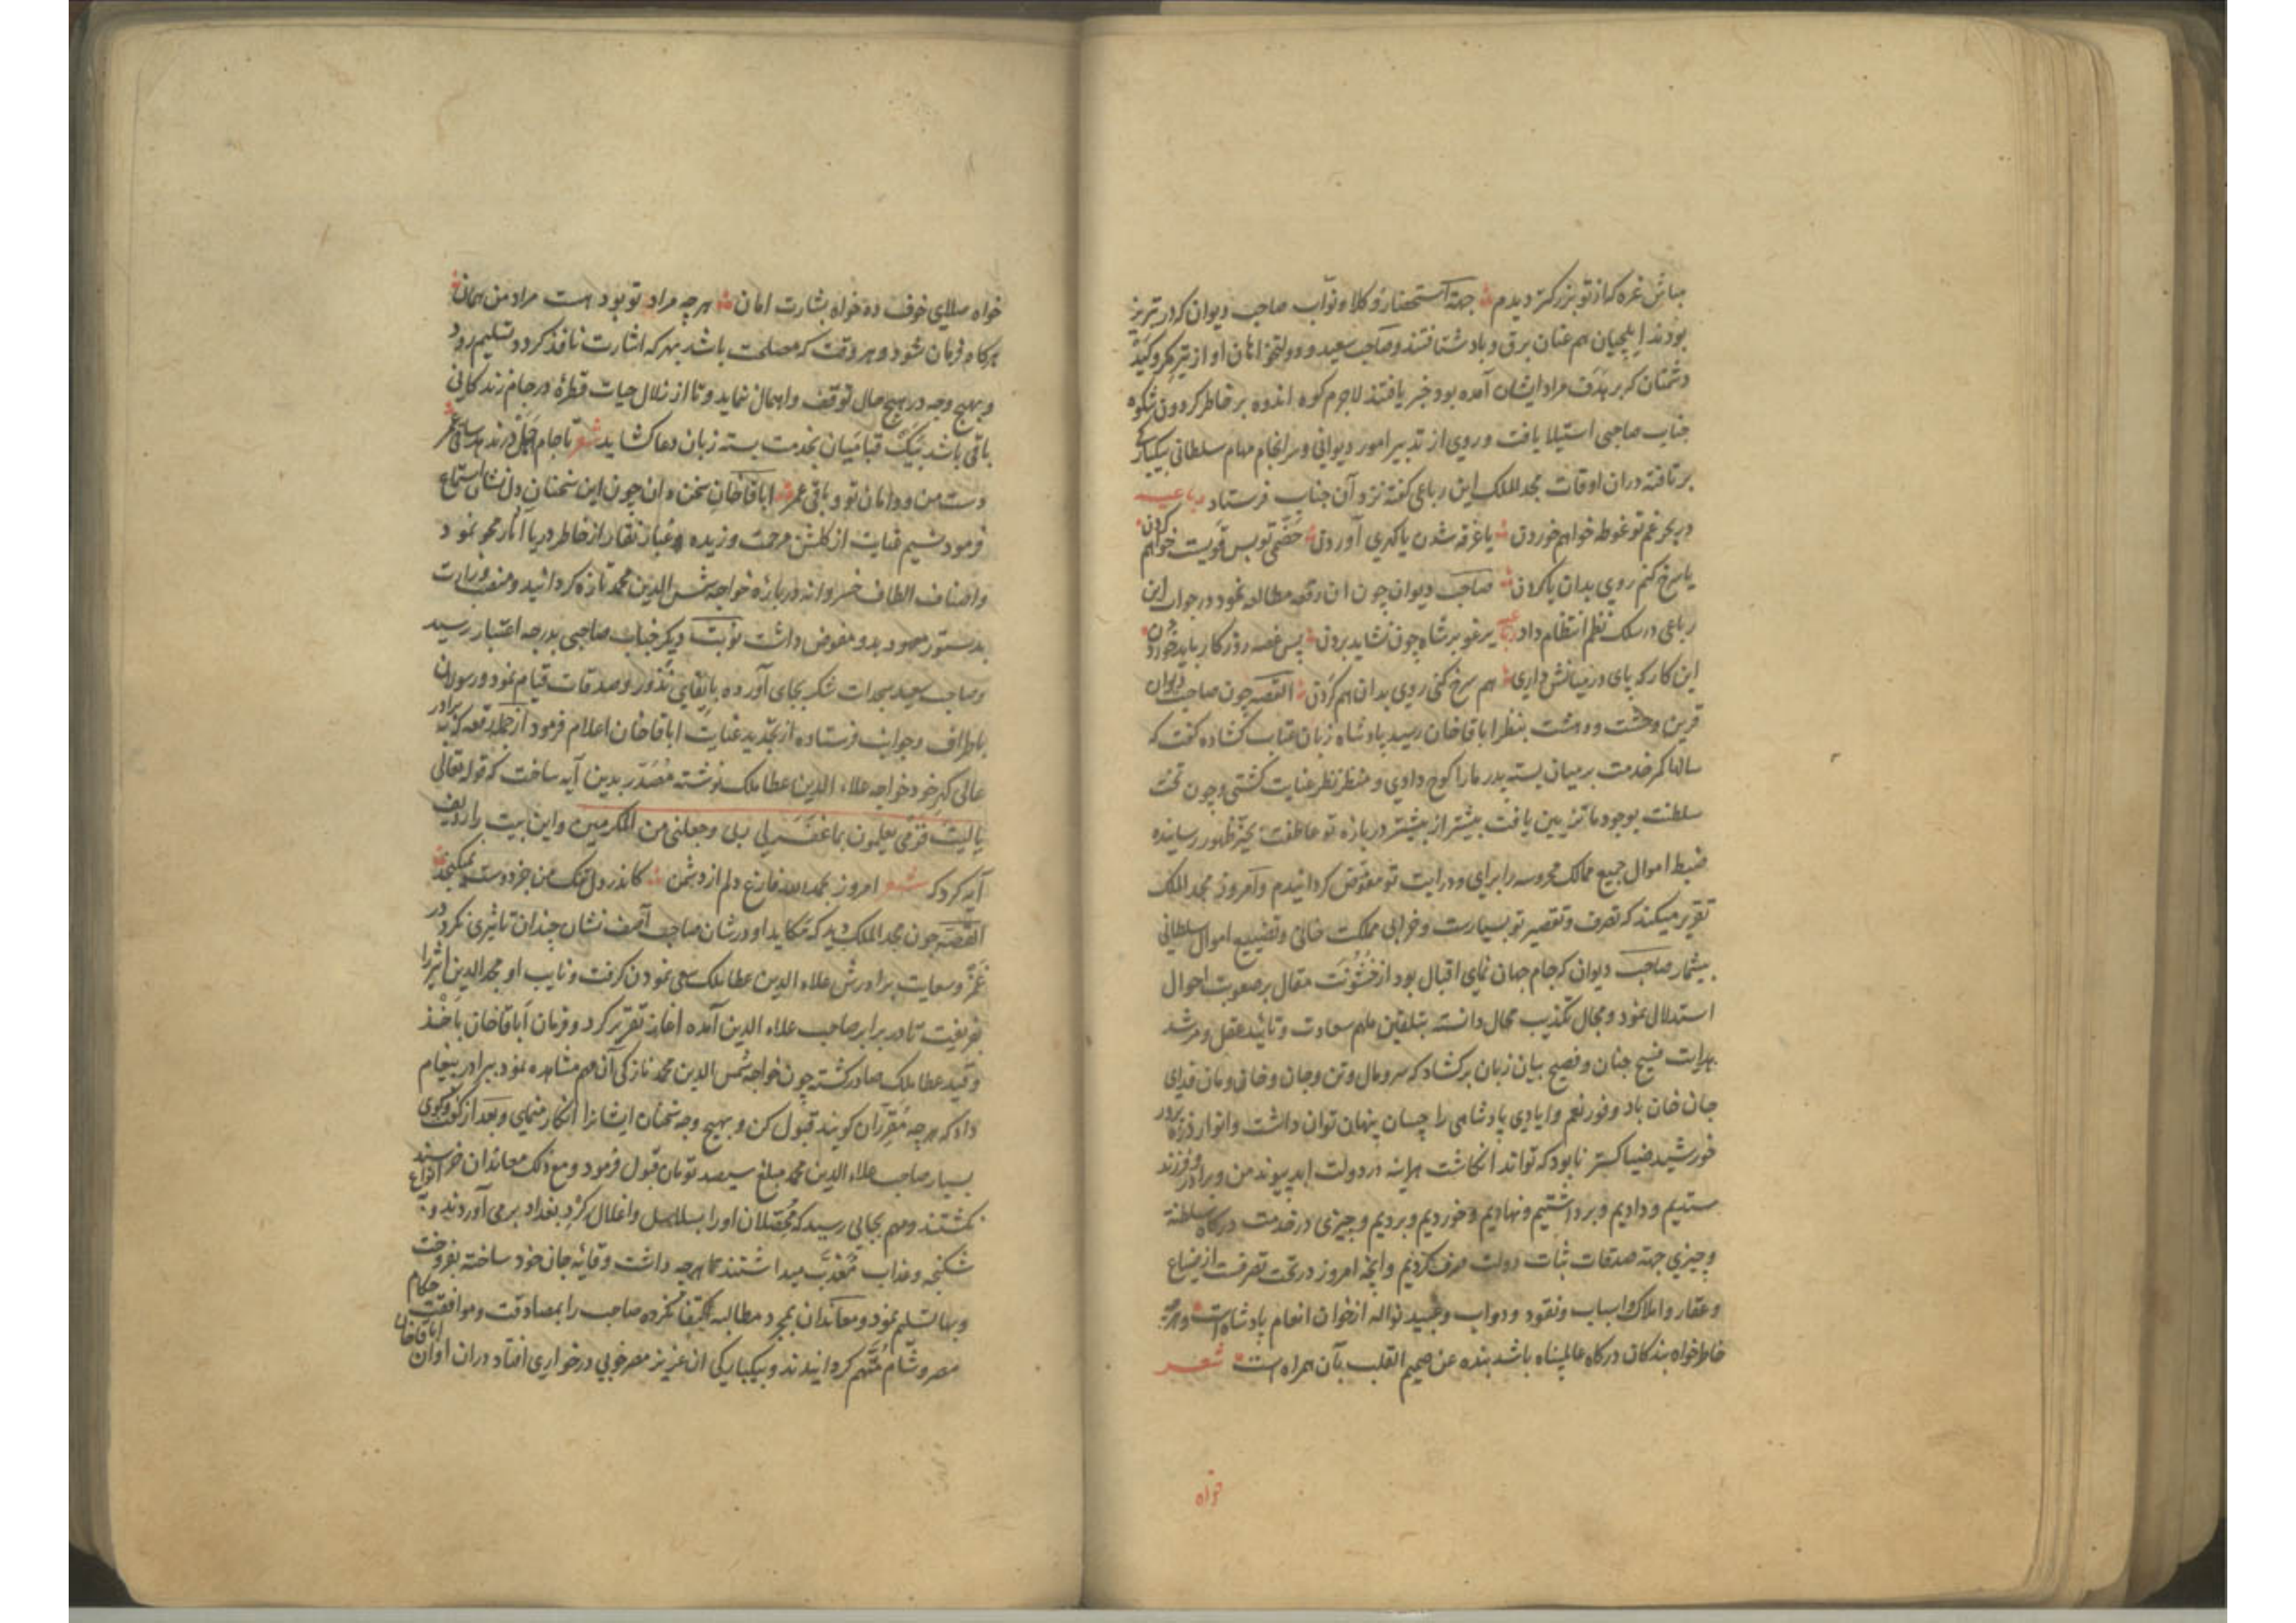 مباش غره که از تو بزرگتر دیدم جهة استحضار وکلا و نواب صاحب دیوان که در تبریز
بودند ایلچیان هم عنان برق و باد شتافتند و صاحب سعید و دولتخواهان او از تیر مکر و کید
دشمنان که بر هدف مراد ایشان آمده بود خبر یافتند لاجرم کوه اندوه بر خاطر کردون شکوه
جناب صاحبی استیلا یافت و روی از تدبیر امور دیوانی و سرانجام مهام سلطانی بیکبارکی
برتافته دران اوقات مجد الملک این رباعی کفته نزد آن جناب فرستاد رباعیه
در بحر غم تو غوطه خواهم خوردن یا غرقه شدن یا کهری آوردن خصمی تو بس قویست خواهم کردن
یا سرخ کنم روی بدان یا کردن صاحب دیوان چون ان رقعه مطالعه نمود در جواب این
رباعی در سلک نظم انتظام داد رباعیه یرغو بر شاه چون نشاید بردن پس غصه روزکار باید خوردن
این کار که پای در میانش داری هم سرخ کنی روی بدان هم کردن القصه چون صاحب دیوان
قرین وحشت و دهشت بنظر اباقاخان رسید پادشاه زبان عتاب کشاده کفت که
سالها کمر خدمت بر میان بسته پدر مارا کوچ دادی و منظر نظر عنایت کشتی و چون تخت
سلطنت بوجود ما تزیین یافت بیشتر از پیشتر درباره تو عاطفت بحیز ظهور رسانیده
ضبط اموال جمیع ممالک محروسه را برای و درایت تو مفوض کردانیدم و امروز مجد الملک
تقریر میکند که تصرف و تقصیر تو بسیارست و خرابی مملکت خانی و تضییع اموال سلطانی
بیشمار صاحب دیوان که جام جهان نمای اقبال بود از خشونت مقال بر صعوبت احوال
استدلال نمود و مجال تکذیب محال دانسته بتلقین ملهم سعادت و تائید عقل و مرشد
هدایت فسیح جنان و فصیح بیان زبان برکشاد که سر و مال و تن و جان و خان و مان فدای
جان خان باد وفور نعم و ایادی پادشاهی را چسان پنهان توان داشت و انوار ذره پرور
خورشید ضیا کستر نابود که تواند انکاشت هراینه در دولت ابد پیوند من و برادر و فرزند
ستدیم و دادیم و برداشتیم و نهادیم و خوردیم و بردیم و چیزی در خدمت درکاه سلطنة
و چیزی جهة صدقات ثبات دولت صرف کردیم و انچه امروز در تحت تصرفست از ضیاع
و عقار و املاک و اسباب و نقود و دواب و عبید نواله از خوان انعام پادشاه است و هرچه
خاطرخواه بندکان درکاه عالمپناه باشد بنده عن صمیم القلب بآن همراه است شعر
خواه
خواه صلای خوف ده خواه بشارت امان هر چه مراد تو بود هست مراد من همان
بهرکاه فرمان شود و هر وقت که مصلحت باشد بهر که اشارت نافذ کردد تسلیم رود
و بهیچ وجه در هیچ حال توقف و اهمال ننماید و تا از زلال حیات قطرۀ در جام زندکانی
باقی باشد بنک قبا میان بخدمت بسته زبان دعا کشاید شعر تا جام اجل در ندهد ساقی عمر
دست من و دامان تو و باقی عمر اباقاخان سخن دان چون این سخنان دل نشان استماع
فرمود نسیم عنایت از کلشن مرحمت وزیده و غبار نقار از خاطر دریا آثار محو نمود
و اصناف الطاف خسروانه درباره خواجه شمس الدین محمد تازه کردانید و منصب وزارت
بدستور معهود بدو مفوض داشت نوبت دیکر جناب صاحبی بدرجه اعتبار رسید
و صاحب سعید سجدات شکر بجای آورده بایفای نذور و صدقات قیام نمود و رسولان
باطراف و جوانب فرستاده از تجدید عنایت اباقاخان اعلام فرمود از جمله رقعه که به برادر
عالی کهر خود خواجه علاء الدین عطا ملک نوشته مصدر بدین آیه ساخت که قوله تعالی
یا لیت قومی یعلمون بما غفر لی ربی و جعلنی من المکرمین و این بیت را ردیف
آیه کرد که شعر امروز بحمد الله فارغ دلم از دشمن کاندر دل تنک من جز دوست نمیکنجد
القصه چون مجد الملک دید که مکاید او در شان صاحب آصف نشان چندان تاثیری نکرد در
غمز و سعایت برادرش علاء الدین عطا ملک سعی نمودن کرفت و نایب او مجد الدین اثیر را
بفریفت تا در برابر صاحب علاء الدین آمده اغاز تقریر کرد و فرمان اباقاخان باخذ
و قید عطا ملک صادر کشته چون خواجه شمس الدین محمد نازکی آن مهم مشاهده نمود ببرادر پیغام
داد که هر چه مقرران کویند قبول کن و بهیچ وجه سخنان ایشانرا انکار منمای و بعد از کفت و کوی
بسیار صاحب علاء الدین محمد مبلغ سیصد تومان قبول فرمود و مع ذلک معاندان خرسند
نکشتند و مهم بجایی رسید که محصلان اورا بسلاسل و اغلال کرد بغداد برمی آوردند و به انواع
شکنجه و عذاب معذب میداشتند تا هرچه داشت وقایه جان خود ساخته بفروخت
و بها تسلیم نمود و معاندان بمجرد مطالبه اکتفا نکرده صاحب را بمصادقت و موافقت حکام
مصر و شام متهم کردانیدند و بیکبارکی ان عزیز مصر خوبی در خواری افتاد دران اوان اباقاخان